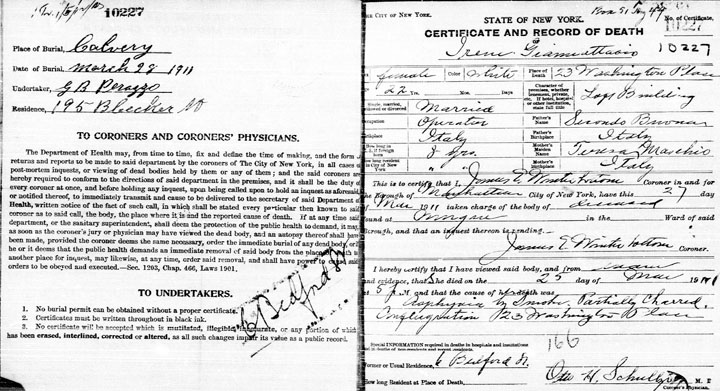 10227
Place of Burial, Calvery
Date of Burial, March 28 1911
Undertaker, G B Perazzo
Residence, 195 Bleecker St
TO CORONERS AND CORONERS' PHYSICIANS.
The Department of Health may, from time to time, fix and define the time of making, and the form
returns and reports to be made to said department by the coroners of The City of New York, in all cases of
post-mortem inquests, or viewing of dead bodies held by them or any of them; and the said coroners are
hereby required to conform to the directions of said department in the premises, and it shall be the duty of
every coroner at once, and before holding any inquest, upon being called upon to hold an inquest as aforesaid,
or notified thereof, to immediately transmit and cause to be delivered to the secretary of said Department of
Health, written notice of the fact of such call, in which shall be stated every particular then known to said
coroner as to said call, the body, the place where it is and the reported cause of death. If at any time said
department, or the sanitary superintendent, shall deem the protection of the public health to demand, it may,
as soon as the coroner's jury or physician may have viewed the dead body, and an autopsy thereof shall have
been made, provided the coroner deems the same necessary, order the immediate burial of any dead body or
he or it deems that the public health demands an immediate removal of said body from the place to
another place for inquest, may likewise, at any time, order said removal, and shall have power to
orders to be obeyed and executed.—Sec. 1203, Chap. 466, Laws 1901.
6 Bedford St
TO UNDERTAKERS.
1. No burial permit can be obtained without a proper certificate.
2. Certificates must be written throughout in black ink.
3. No certificate will be accepted which is mutilated, illegible, inaccurate, or any portion of which
has been erased, interlined, corrected or altered, as all such changes impair its value as a public record.
THE CITY OF NEW YORK.
STATE OF NEW YORK.
No. of Certificate,
CERTIFICATE AND RECORD OF DEATH
10227
Irene Giannattasio
female Color White Place of Death 23 Washington Place
22 Yrs. Mos. Days Character of premises, whether tenement, private, etc. If hotel, hospital or other institution, state full title Loft Building
Single, married, widowed, or divorced Married
Occupation Operator Father's Name
Birthplace Italy Father's Birthplace Italy
How long in U.S., if foreign Yrs. Mother's Maiden Name Teresa
How long resident in City of New York Mother's Birthplace Italy
This is to certify that I, James E Winterbottom Coroner in and for
the Borough of Manhattan City of New York, have this 27 day
of Mar 1911 taken charge of the body of deceased
found at Morgue in the Ward of said
Borough, and that an inquest thereon is pending.
James E Winterbottom Coroner.
I hereby certify that I have viewed said body, and from
and evidence, that she died on the 25 day of Mar 1911
at 5 P.M and that the cause of her death was
Asphyxia by Smoke. Partially Charred.
Conflagration 23 Washington Place
166
Special information required in deaths in hospitals and institutions
Former or Usual Residence, 6 Bedford St.
How long Resident at Place of Death, Otto H. Schultze M. D.
Coroner's Physician.